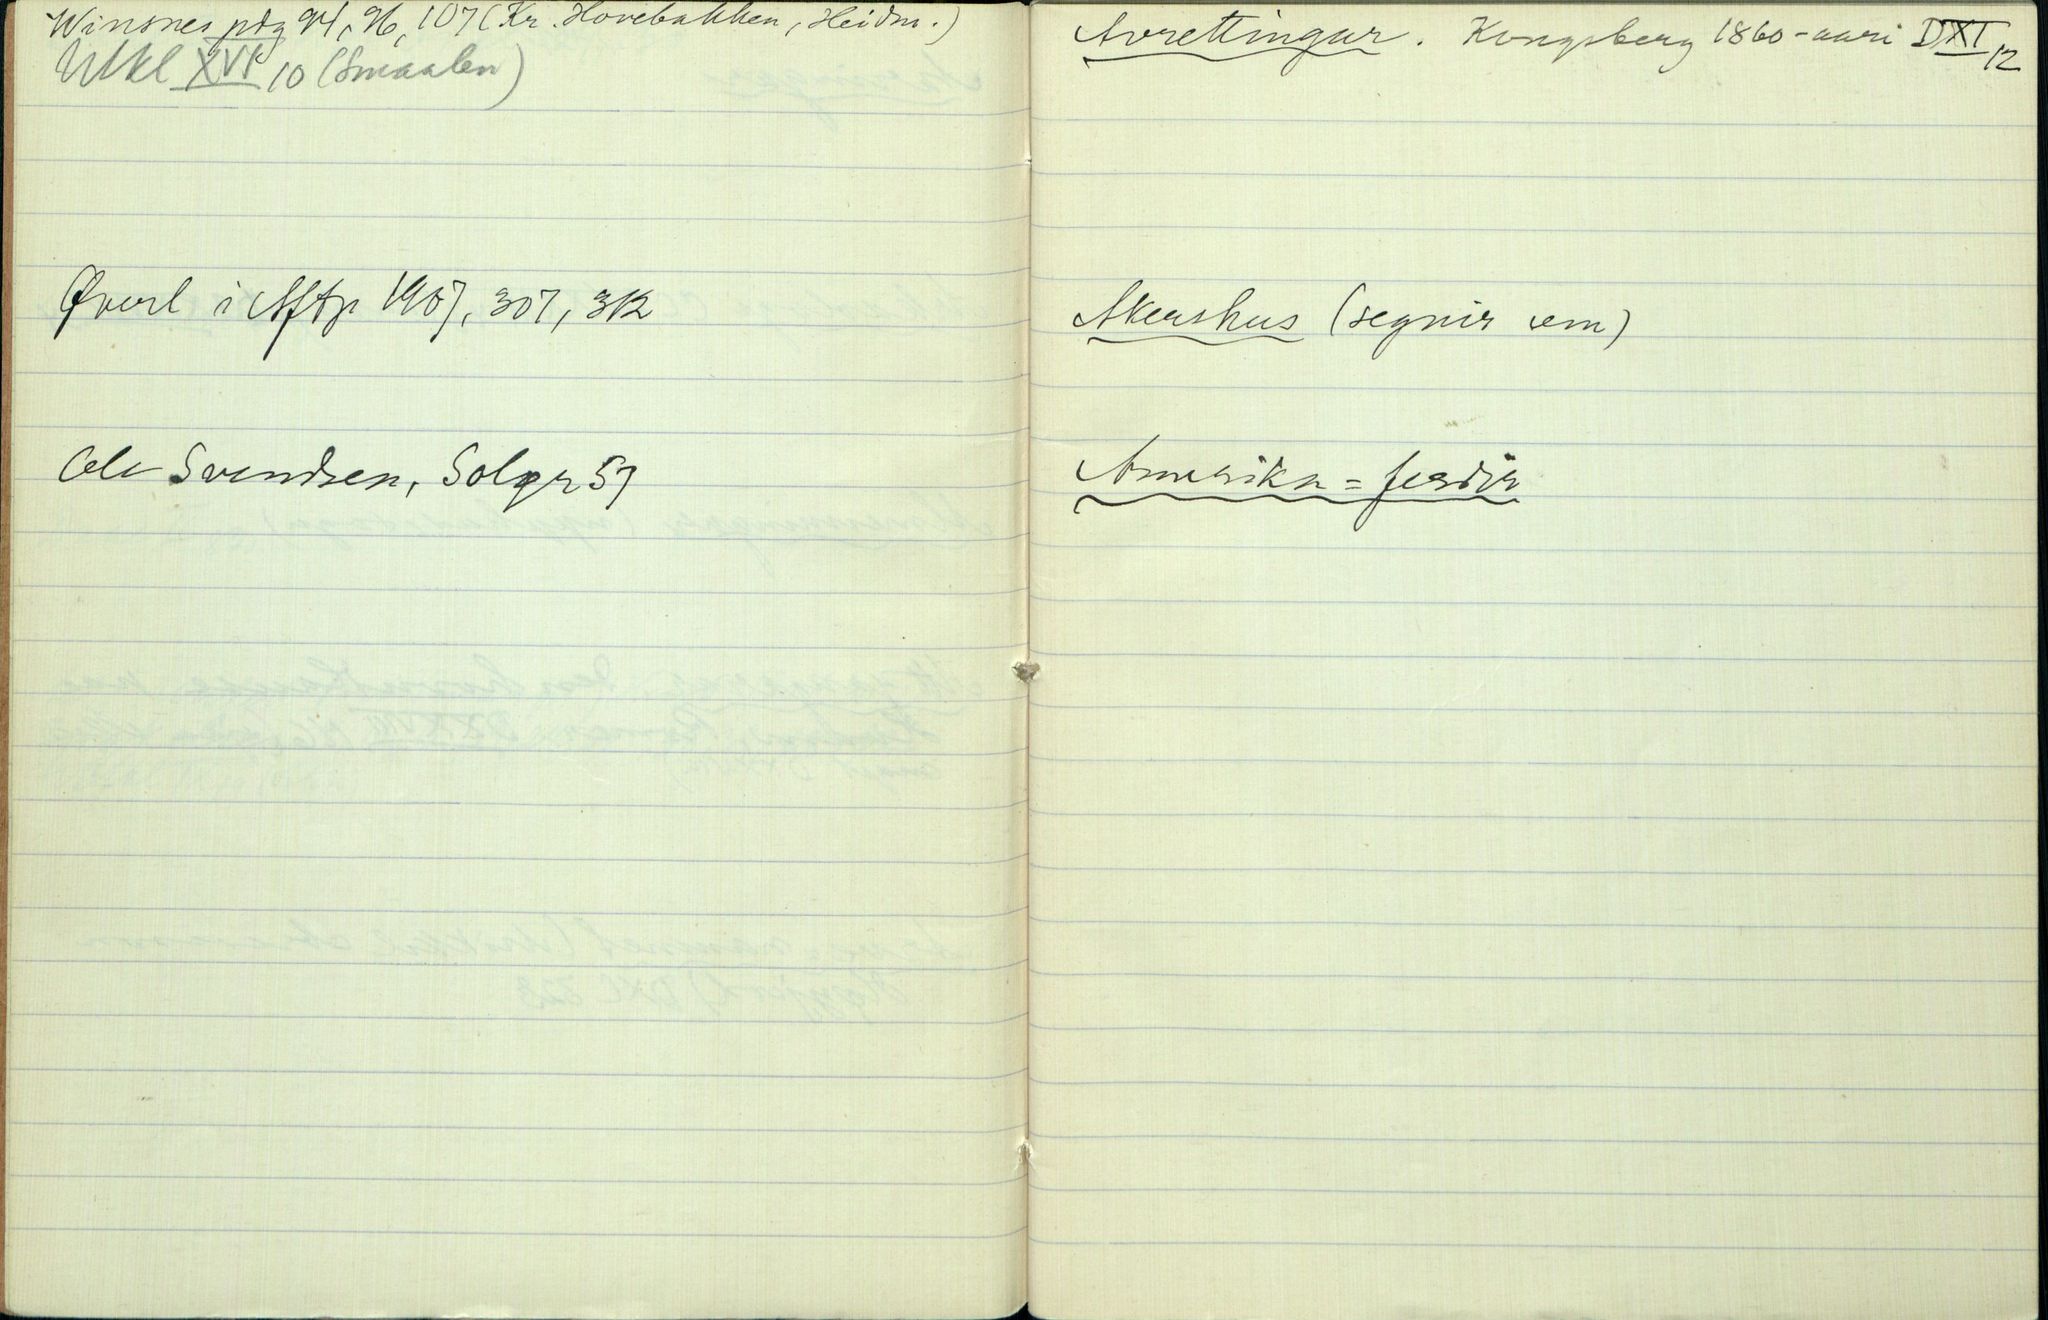 Winsnes pdg 94, 96, 107 (Kr. Hovebakken, Heidm.)
Utkl XVI 10 (Smaalen)
Øverl i Aftp 1907, 307, 312
Ole Svendsen, Solgr 57
Avrettingar. Kongsberg 1860-aari DXI 12
Akershus (segnir um)
Amerika=ferdir